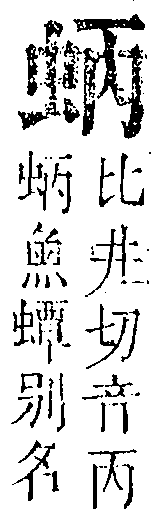 蛃
比井切音丙
蛃魚蟫别名